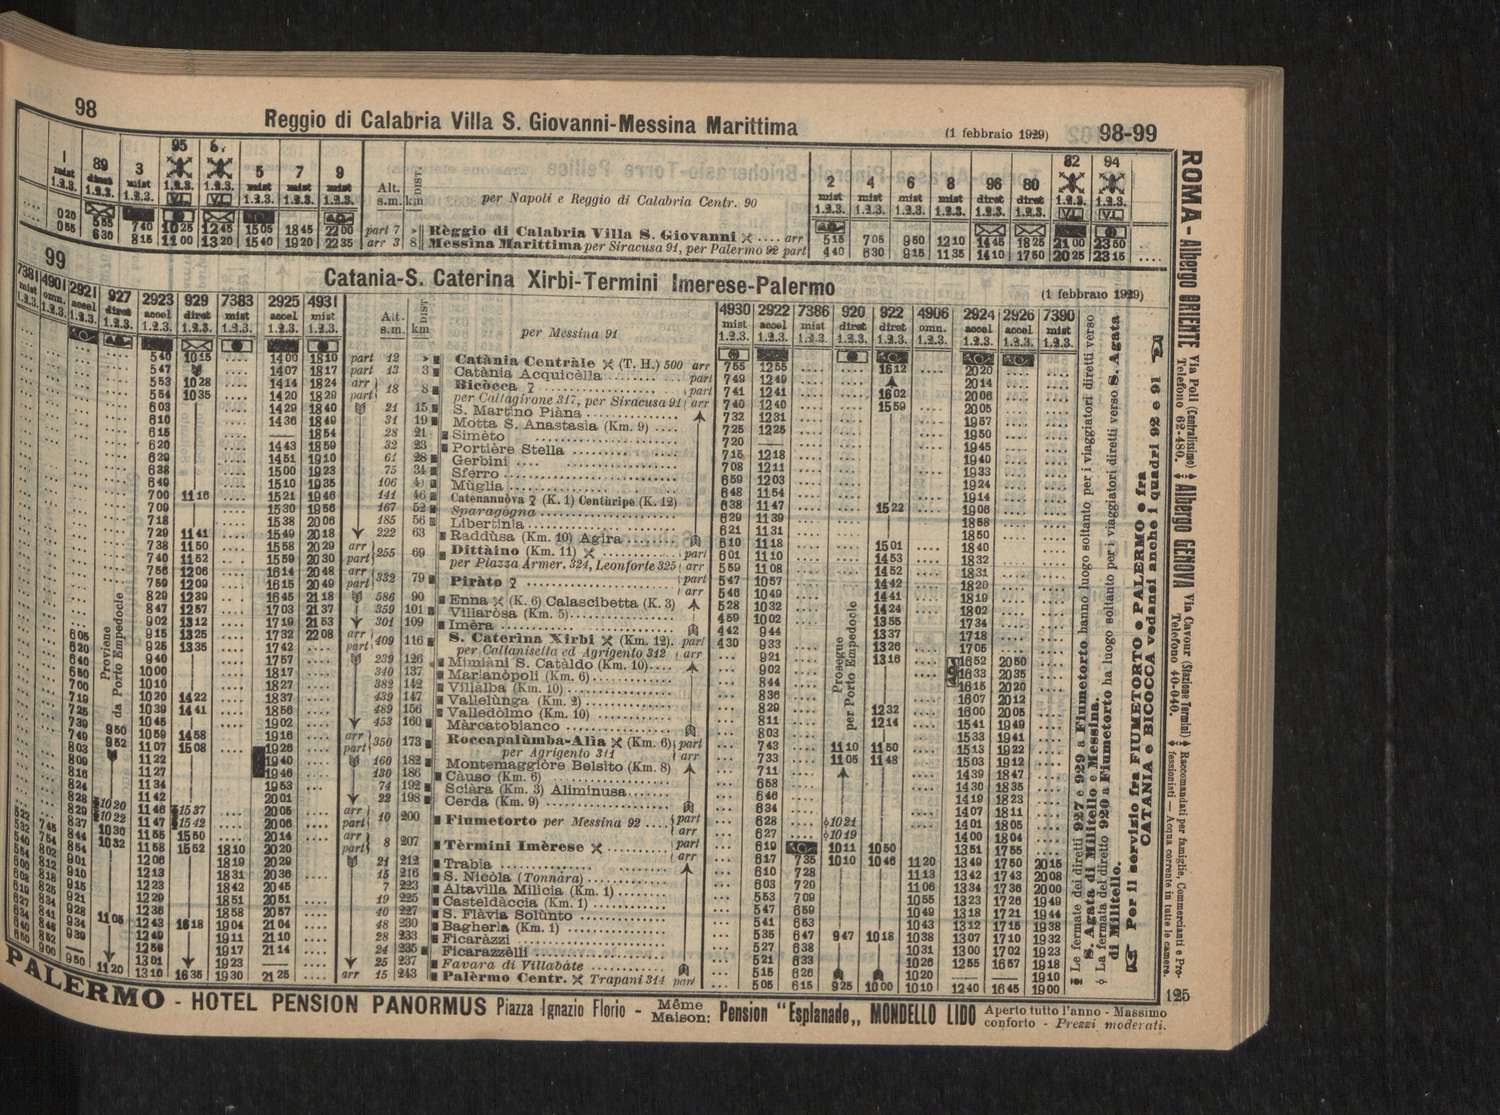 98
Reggio di Calabria Villa S. Giovanni-Messina Marittima
(1 febbraio 1929)
98-99
1 89 3 95 5 7 9
mist diret mist mist mist mist
1.2.3. 1.2.3. 1.2.3. 1.2.3. 1.2.3. 1.2.3. 1.2.3. 1.2.3.
Alt. s.m. DIST. km
per Napoli e Reggio di Calabria Centr. 90
2 4 6 8 96 80 82 94
mist mist mist mist diret diret
1.2.3. 1.2.3. 1.2.3. 1.2.3. 1.2.3. 1.2.3. 1.2.3. 1.2.3.
0 20 5 55 7 40 10 25 12 45 15 05 18 45 22 00 part 7 Règgio di Calabria Villa S. Giovanni .... arr 5 15 7 05 9 50 12 10 14 45 18 25 21 00 23 50
0 55 6 30 8 15 11 00 13 20 15 40 19 20 22 35 arr 3 8 Messina Marittima per Siracusa 91, per Palermo 92 part 4 40 6 30 9 15 11 35 14 10 17 50 20 25 23 15
99
Catania-S. Caterina Xirbi-Termini Imerese-Palermo
(1 febbraio 1929)
7381 4901 2921 927 2923 929 7383 2925 4931
mist omn. accel diret accel diret mist accel mist
1.2.3. 1.2.3. 1.2.3. 1.2.3. 1.2.3. 1.2.3. 1.2.3. 1.2.3. 1.2.3.
Alt. s.m. DIST km
per Messina 91
4930 2922 7386 920 922 4906 2924 2926 7390
mist accel mist diret diret omn. accel accel mist
1.2.3. 1.2.3. 1.2.3. 1.2.3. 1.2.3. 1.2.3. 1.2.3. 1.2.3. 1.2.3.
5 40 10 15 .... 14 00 18 10 part 12 Catània Centràle (T. H.) 500 arr 7 55 12 55 16 12 20 20
5 47 14 07 18 17 part 13 3 Catàna Acquicèlla part 7 49 12 49 20 14
5 53 10 28 14 14 18 24 arr 18 8 Bicòcca part 7 41 12 41 16 02 20 06
5 54 10 35 14 20 18 29 part per Caltagirone 317, per Siracusa 91 arr 7 40 12 40 15 59 20 05
6 03 14 29 18 40 21 15 S. Martino Piàna 7 32 12 31 19 57
6 10 14 36 18 49 31 19 Motta S. Anastasia (Km. 9) 7 25 12 25 19 50
6 15 — 18 54 28 21 Simèto 7 20 — 19 45
6 20 14 43 18 59 32 23 Portière Stella 7 15 12 18 19 40
6 29 14 51 19 10 61 28 Gerbini 7 08 12 11 19 33
6 38 15 00 19 23 75 34 Sferro 6 59 12 03 19 24
6 49 15 10 19 35 106 Mùglia 6 48 11 54 19 14
7 00 11 16 15 21 19 46 141 46 Catenanuòva (K. 1) Centùripe (K. 12) 6 38 11 47 15 22 19 06
7 09 15 30 19 56 167 52 Sparagògna 6 29 11 39 18 58
7 18 15 38 20 06 185 56 Libertinia 6 21 11 31 18 50
7 29 11 41 15 49 20 18 222 63 Raddùsa (Km. 10) Agira 6 10 11 18 15 01 18 40
7 38 11 50 15 58 20 29 arr 255 69 Dittàino (Km. 11) part 6 01 11 10 14 53 18 32
7 40 11 52 15 59 20 30 part per Piazza Armer. 324, Leonforte 325 arr 5 59 11 08 14 52 18 31
7 56 12 06 16 14 20 48 arr 332 79 Piràto part 5 47 10 57 14 42 18 20
7 59 12 09 16 15 20 49 part arr 5 46 10 49 14 41 18 19
8 29 12 39 16 45 21 18 586 90 Enna (K. 6) Calascibetta (K. 3) 5 28 10 32 14 24 18 02
8 47 12 57 17 03 21 37 359 101 Villaròsa (Km. 5) 4 59 10 02 13 55 17 34
9 02 13 12 17 19 21 53 301 109 Imèra 4 42 9 44 13 37 17 18
6 05 9 15 13 25 17 32 22 08 arr 409 116 S. Caterina Xirbi (Km. 12). part 4 30 9 33 13 26 17 05
6 20 9 25 13 35 17 42 part per Caltanisetta ed Agrigento 312 arr 9 21 13 16 16 52 20 50
6 40 9 40 17 57 239 126 Mimiàni S. Catàldo (Km. 10) 9 02 16 33 20 35
6 50 10 00 18 17 340 137 Marianòpoli (Km. 6) 8 44 16 15 20 20
7 00 10 10 18 27 382 142 Villàlba (Km. 10) 8 36 16 07 20 12
7 19 10 20 14 22 18 37 439 147 Vallelùnga (Km. 2) 8 29 12 32 16 00 20 05
7 25 10 39 14 41 18 56 489 156 Valledòlmo (Km. 10) 8 11 12 14 15 41 19 49
7 39 10 45 19 02 453 160 Màrcatobianco 8 03 15 33 19 41
7 49 9 50 10 59 14 58 19 16 arr 350 173 Roccapalùmba-Alìa (Km. 6) part 7 43 11 10 11 50 15 13 19 22
8 03 9 52 11 07 15 08 19 26 part per Agrigento 311 arr 7 33 11 05 11 48 15 03 19 12
8 09 11 22 19 40 160 182 Montemaggiòre Belsito (Km. 8) 7 11 14 39 18 47
8 16 11 27 19 46 130 186 Càuso (Km. 6) 6 58 14 30 18 35
8 24 11 34 19 53 74 192 Sciàra (Km. 3) Aliminusa 6 46 14 19 18 23
8 28 11 42 20 01 22 198 Cerda (Km. 9) 6 34 14 07 18 11
5 22 8 29 10 20 11 46 15 37 20 05 arr 10 200 Fiumetorto per Messina 92 part 6 28 10 21 14 01 18 05
5 32 7 45 8 37 10 22 11 47 15 42 20 06 part arr 6 27 10 19 14 00 18 04
5 40 7 54 8 44 10 30 11 55 15 50 20 14 arr 8 207 Tèrmini Imèrese part 6 19 10 11 10 50 13 51 17 55
5 54 8 02 8 54 10 32 11 58 15 52 18 10 20 20 part arr 6 17 7 35 10 10 10 46 11 20 13 49 17 50 20 15
6 00 8 06 9 01 12 06 18 19 20 29 21 212 Trabìa 6 10 7 28 11 13 13 42 17 43 20 08
8 12 9 10 12 13 18 31 20 36 15 216 S. Nicòla (Tonnàra) 6 03 7 20 11 06 13 34 17 36 20 00
9 15 12 23 18 42 20 45 7 223 Altavilla Milìcia (Km. 1) 5 53 7 09 10 55 13 23 17 26 19 49
9 21 12 29 18 51 20 51 19 225 Casteldàccia (Km. 1) 5 47 6 59 10 49 13 18 17 21 19 44
9 28 12 36 18 58 20 57 40 227 S. Flàvia Solùnto 5 41 6 53 10 43 13 12 17 15 19 38
9 34 11 05 12 43 16 18 19 04 21 04 48 230 Bagherìa (Km. 1) 5 35 6 47 9 47 10 18 10 38 13 07 17 10 19 32
9 39 12 49 19 11 21 10 28 233 Ficaràzzi 5 27 6 38 10 31 13 00 17 02 19 23
— 12 56 19 17 21 14 24 235 Ficarazzèlli 5 21 6 33 10 26 12 55 16 57 19 18
9 50 13 01 19 23 — 25 237 Favara di Villabàte 5 15 6 26 10 20 — — 19 10
11 20 13 10 16 35 19 30 21 25 arr 15 243 Palermo Centr. Trapani 314 part 5 05 6 15 9 25 10 00 10 10 12 40 16 45 19 00
Proviene da Porto Empedocle
Prosegue per Porto Empedocle
Le fermate dei diretti 927 e 929 a Fiumetorto hanno luogo soltanto per i viaggiatori diretti verso
S. Agata di Militello e Messina.
La fermata del diretto 920 a Fiumetorto ha luogo soltanto per i viaggiatori diretti verso S. Agata
di Militello.
Per il servizio fra FIUMETORTO e PALERMO e fra
CATANIA e BICOCCA vedansi anche i quadri 92 e 91
ROMA - Albergo ORIENTE Via Poli (Centralissimo) Telefono 62-480. Albergo GENOVA Via Cavour (Stazione Termini) Telefono 40-040. Raccomandati per famiglie, Commercianti e Professionisti — Acqua corrente in tutte le camere.
PALERMO - HOTEL PENSION PANORMUS Piazza Ignazio Florio - Même Maison: Pension "Esplanade„ MONDELLO LIDO Aperto tutto l'anno - Massimo
conforto - Prezzi moderati.
125